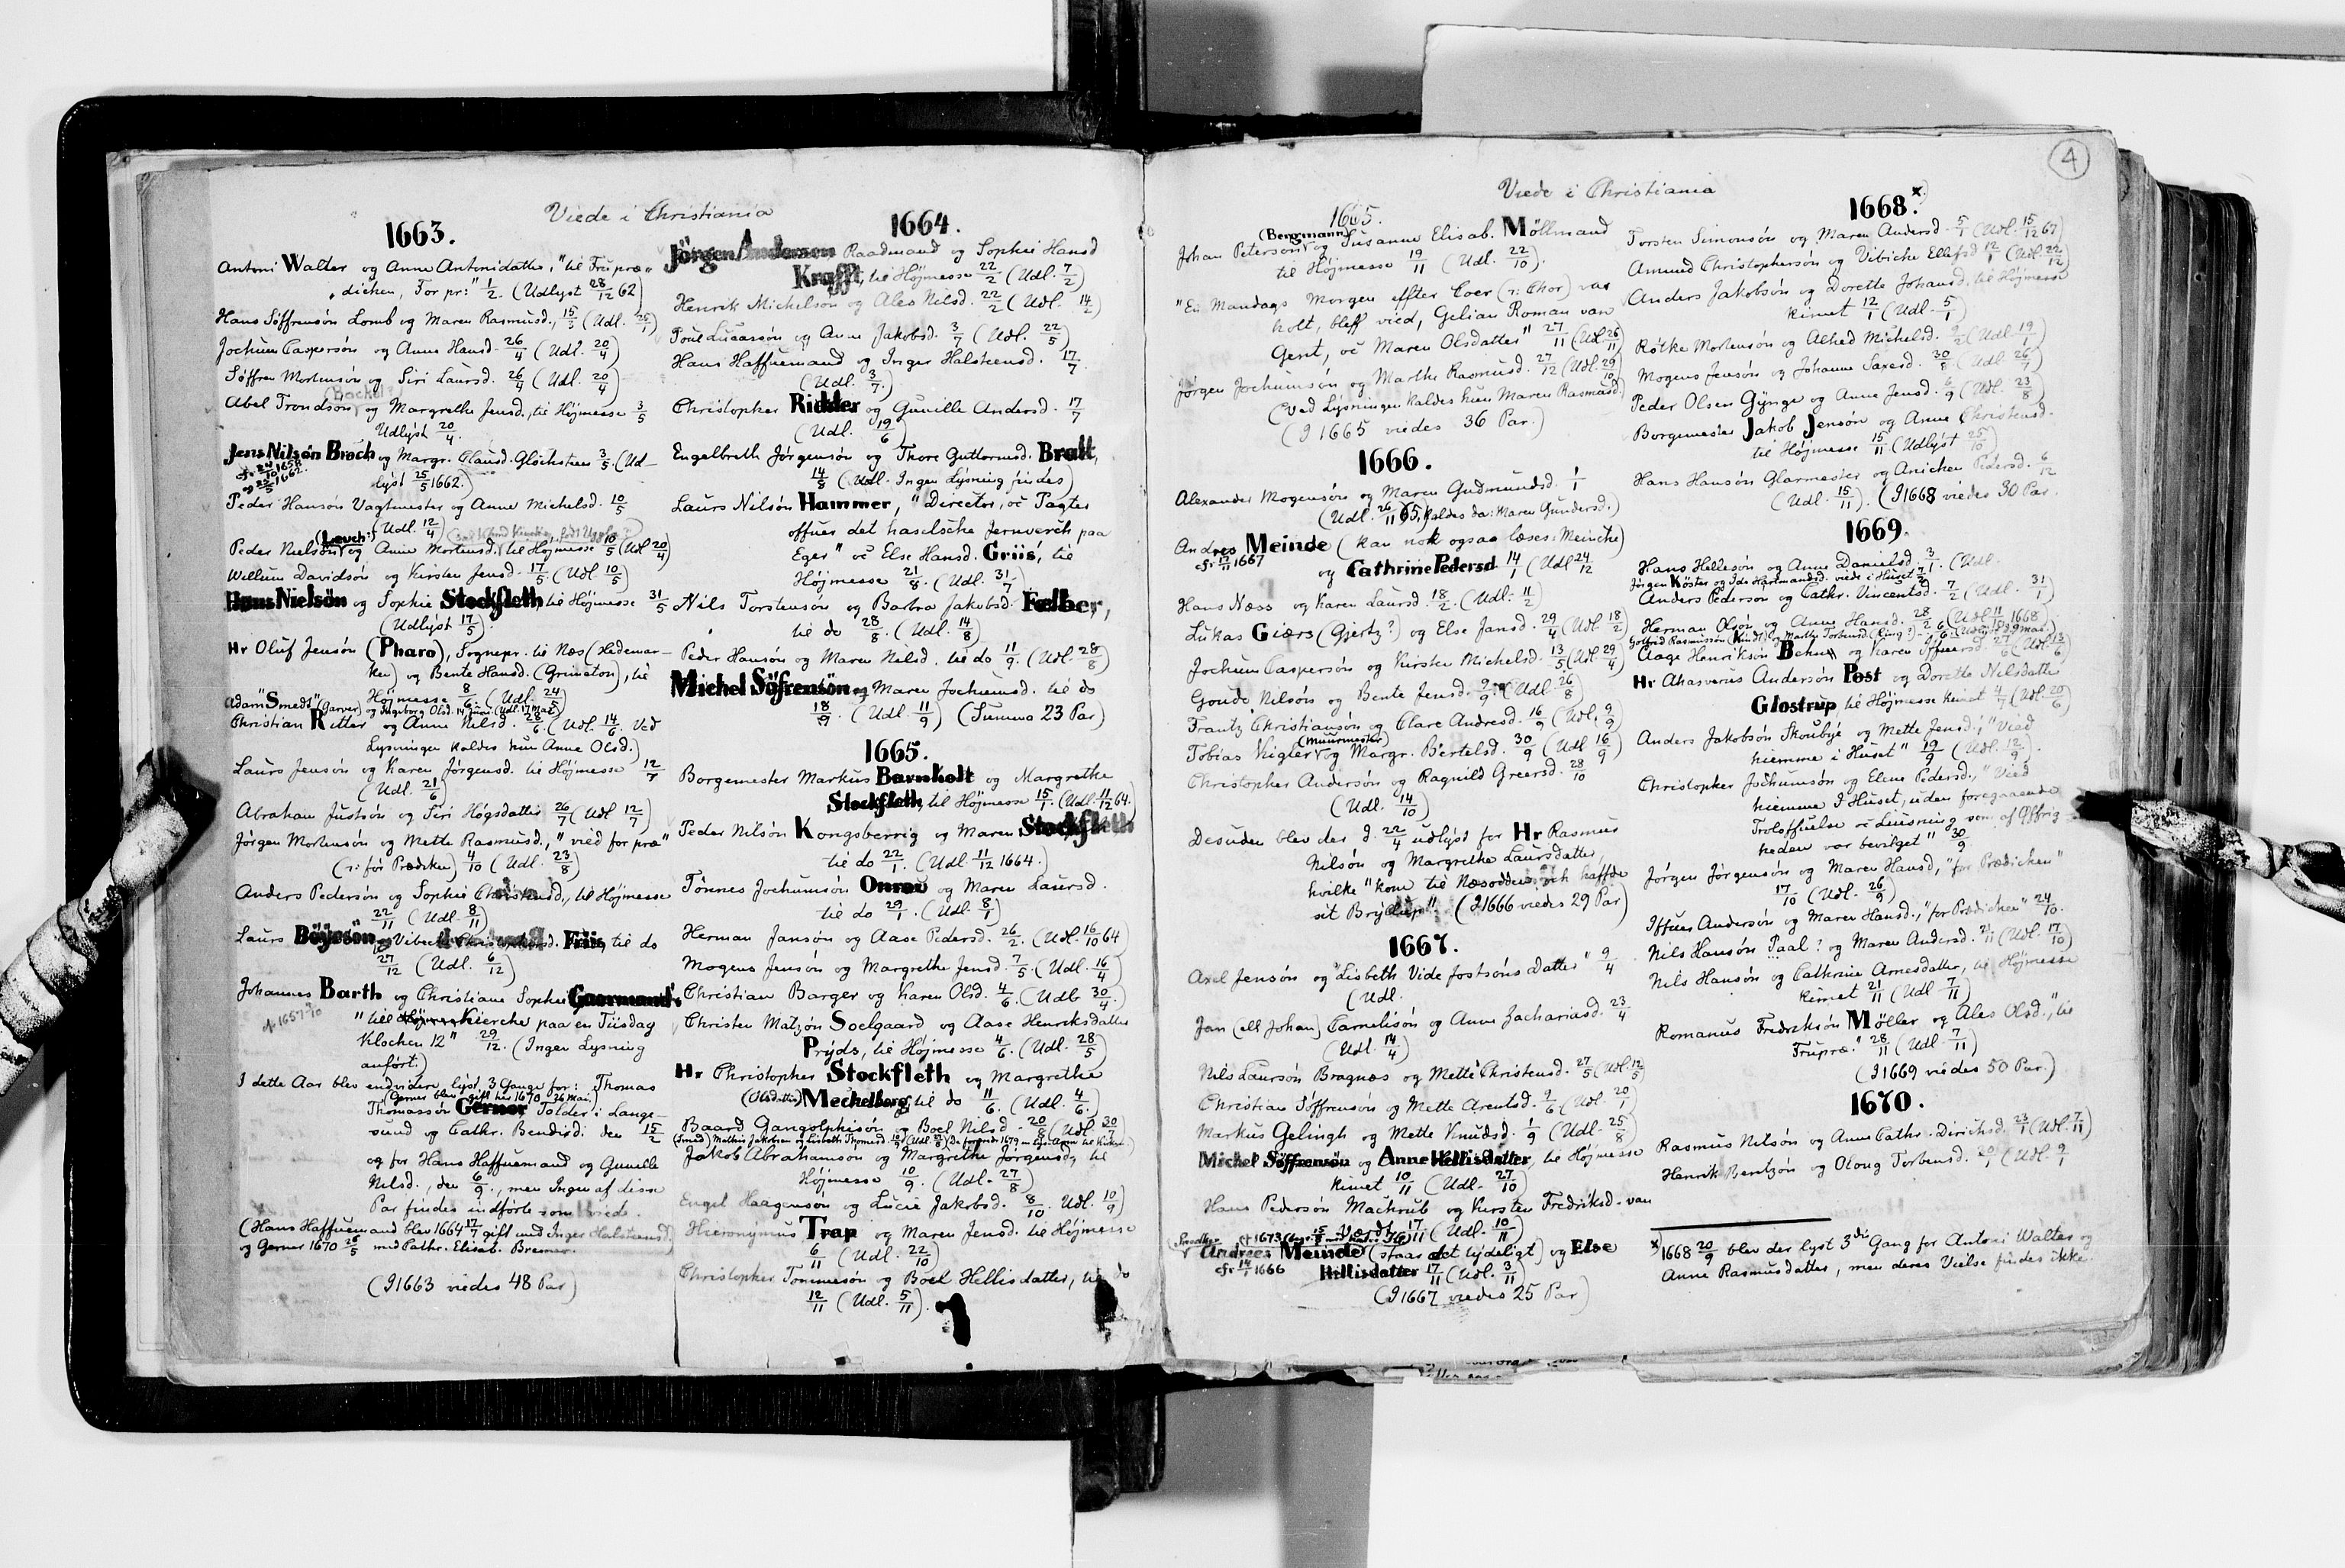 Viede i Christiania
1663.
Antoni Walter og Anne Antonidatter, "til Fru præ-
dicken, For pr:" 1/2. (Udlyst 28/12 62)
Hans Söffrensön Lomb og Maren Rasmusd., 15/3 (Udl. 25/1)
Jochum Caspersön og Anne Hansd. 26/4 (Udl. 20/4)
Söffren Mortensön og Siri Laursd. 26/4 (Udl. 20/4)
(Bockel)
Abel Trondsön og Margrethe Jensd., til Höjmesse 3/5
Udlyst 20/4.
Jens Nilsön Broch og Margr. Clausd. Glöchsteen 3/5. (Ud-
lyst 25/5 1662.)
Peder Hansön Vagtmester og Anne Michelsd. 10/5
(Udl. 12/4)
(Leuch?)
Peder Nielsön og Anne Mortensd. til Höjmesse 10/5 (Udl. 20/4)
Wellum Davidsön og Kirsten Jensd. 17/5 (Udl. 10/5)
Hans Nielsön og Sophie Stockfleth til Höjmesse 31/5
(Udlyst 17/5).
Hr Oluf Jensön (Pharo), Sognepr. til Næs (Hedemar-
ken) og Bente Hansd. (Grimeton), til
Höjmesse 8/6 (Udl. 24/5)
Adam "Smeds" (Garver) og Ingeborg Olsd. 14 Juni. (Udl. 17 Mai)
Christian Ritter og Anne Nilsd. 28/6. (Udl. 14/6. Ved
Lysningen kaldes hun Anne Olsd.)
Laurs Jensön og Karen Jörgensd. til Höjmesse 12/7
(Udl. 21/6)
Abraham Justsön og Siri Högsdatter 26/7 (Udl. 12/7)
Jörgen Mortensön og Mette Rasmusd., "vied for præ"
(ɔ: för Prædiken) 4/10 (Udl. 23/8)
Anders Pedersön og Sophie Christensd., til Höjmesse
22/11 (Udl. 8/11)
Laurs Böÿesön og Vibeche Friis, til do
27/12 (Udl. 6/12)
Johannes Barth og Christiane Sophie Gaarmand's
"till Kiercke paa en Tiisdag
Klochen 12" 29/12. (Ingen Lysning
anfört.)
I dette Aar blev endvidere lyst 3 Gange for: Thomas
(Gerner blev gift her 1670 26 Mai.)
Thomassön Gerner Tolder i Lange-
sund og Cathr. Bendixd. den 15/2
og for Hans Haffuemand og Gunille
Nilsd., den 6/9., men Ingen af disse
Par findes indförte som viede.
(Hans Haffuemand blev 1664 17/7 gift med Inger Halstensd.)
og Gerner 1670 26/5 med Cathr. Elisab. Bremer.
(I 1663 viedes 48 Par)
1664.
Jörgen Andersen Raadmand og Sophie Hansd
Krafft, til Höjmesse 22/2 (Udl. 7/2)
Henrik Michelsön og Ales Nilsd. 22/2 (Udl. 14/2)
Poul Lucassön og Ane Jakobsd. 3/7 (Udl. 22/5)
Hans Haffuemand og Inger Halstensd. 17/7
(Udl. 3/7.)
Christopher Ridder og Gunille Andersd. 17/7
(Udl. 19/6)
Engelbreth Jörgensön og Thore Guttormsd. Bratt,
14/8 (Udl. Ingen Lysning findes)
Laurs Nilsön Hammer, "Director, oc Pagter
offuer det haselsche Jernverch paa
Eger" oc Else Hansd. Griis, til
Höjmesse 21/8. (Udl. 31/7)
Nils Torstensön og Barbra Jakobsd. Felber,
til do 28/8. (Udl. 14/8)
Peder Hansön og Maren Nilsd. til do 11/9. (Udl. 28/8)
Michel Söfrensön og Maren Jochumsd. til do
18/9. (Udl. 11/9) (Summa 23 Par)
1665.
Borgemester Markus Barnholt og Margrethe
Stockfleth, til Höjmesse 15/1. (Udl. 11/12 64.)
Peder Nilsön Kongsberrig og Maren Stockfleth
til do 22/1. (Udl. 11/12 1664.)
Tönnes Jochumsön Onrou og Maren Laursd.
til do 29/1. (Udl. 8/1)
Herman Jansön og Aase Pedersd. 26/2. (Udl. 16/10 64)
Mogens Jensön og Margrethe Jensd. 7/5. (Udl. 16/4)
Christian Barger og Karen Olsd. 4/6. (Udl. 30/4.)
Christen Matzön Soelgaard og Aase Henriksdatter
Pryds, til Höjmesse 4/6. (Udl. 28/5)
Hr Christopher Stockfleth og Margrethe
(Olsdatter) Mechelborg til do 11/6. (Udl. 4/6.)
Baard Gangolphisön og Boel Nilsd. 20/8 (Udl. 30/7)
Jakob Abrahamsön og Margrethe Jörgensd., til
Höjmesse 10/9. (Udl. 27/8)
Engel Haagensön og Lucie Jakobsd. 8/10. Udl. 10/9)
Hieronymus Trap og Maren Jensd. til Höjmesse
6/11 (Udl. 22/10)
Christopher Tommesön og Boel Hellisdatter, til do
12/11 (Udl. 5/11).
4
Viede i Christiania
1665.
(Bergmann)
Johan Petersön og Susanne Elisab. Möllmand
til Höjmesse 19/11 (Udl. 22/10).
"En Mandags Morgen effter Coer (ɔ: Chor) var
holt, bleff vied, Gelian Roman van
Gent, oc Maren Olsdatter" 27/11 (Udl. 26/11)
Jörgen Jochumsön og Marthe Rasmusd. 27/12 (Udl. 29/10)
(ved Lysningen kaldes hun Maren Rasmusd)
(I 1665 viedes 36 Par.)
1666.
Alexander Mogensön og Maren Gudmundsd. 1/1
(Udl. 26/11 65, kaldes da: Maren Gundersd.)
Andres Meinde (kan nok ogsaa læses: Meinche)
cfr 17/11 1667 og Cathrine Pedersd. 14/1 (Udl 24/12
Hans Næss og Karen Laursd. 18/2. (Udl. 11/2)
Lukas Giærs (Gjertz?) og Else Jansd. 29/4 (Udl. 18/2)
Jochum Caspersön og Kirsten Michelsd. 13/5 (Udl. 29/4)
Goude Nilsön og Bente Jensd. 9/9 (Udl. 26/8)
Frantz Christiansön og Clare Andresd. 16/9 (Udl. 9/9)
(Muurmester)
Tobias Kigler og Margr. Bertelsd. 30/9 (Udl 16/9)
Christopher Andersön og Ragnild Greersd. 28/10
(Udl. 14/10)
Desuden blev der d. 22/4 udlyst for Hr Rasmus
Nilsön og Margrethe Laursdatter,
hvilke "kom til Næsodden och haffde
sit Bryllup". (I 1666 viedes 29 Par)
1667.
Axel Jensön og "Lisbeth Vide Jostsöns Datter" 9/4
(Udl.
Jan (ell Johan) Cornelisön og Anne Zachariasd. 23/4
(Udl. 14/4)
Nils Laursön Bragnæs og Mette Christensd. 27/5 (Udl. 12/5)
Christian Söffrensön og Mette Arentsd. 9/6 (Udl. 20/1)
Markus Gelingh og Mette Knudsd. 1/9 (Udl. 25/8)
Michel Söffrensön og Anne Hellisdatter, til Höjmesse
kimet 10/11 (Udl. 27/10)
Hans Pedersön Machrub og Kirsten Fredriksd. van
17/11 (Udl. 10/11)
Andrees Meinde (staar det tydeligt) og Else
cfr 14/1 1666 Hellisdatter 17/11 (Udl. 3/11)
(I 1667 viedes 25 Par)
1668. x)
Torsten Simonsön og Maren Andersd. 5/1 (Udl. 15/12 67)
Amund Christophersön og Vibicke Ellefsd 12/1 (Udl. 22/12)
Anders Jakobsön og Dorette Johansd. til Höjmesse
kimet 12/1 (Udl. 5/1)
Rötke Mortensön og Alhed Michelsd. 9/2 (Udl 19/1)
Mogens Jensön og Johanne Saxesd. 30/8 (Udl 26/7)
Peder Olsen Gynge og Anne Jensd. 6/9 (Udl. 23/8)
Borgemester Jakob Jensön og Anne Christensd.
til Höjmesse 15/11 (Udlyst 25/10)
Hans Hansön Glarmester og Anichen Pedersd. 6/12
(Udl. 15/11). (I 1668 viedes 30 Par.
1669.
Hans Hellesön og Anne Danielsd. 3/1. (Udl.
Jörgen Köster og Ide Hartmandsd. viede i Huset
Anders Pedersön og Cathr. Vincentsd. 7/2 (Udl. 31/1)
Herman Olsön og Anne Hansd. 28/2 (Udl. 11/10 1668)
Aage Henriksön Behn og Karen Iffuersd. 27/6 (Udl. 13/6)
Hr Ahasverus Andersön Post og Dorette Nilsdatter
Glostrup til Höjmesse kimet 4/7 (Udl. 20/6)
Anders Jakobsön Skoubye og Mette Jensd., "Vied
hiemme i Huset" 19/9 (Udl. 12/9)
Christopher Jochumsön og Elene Pedersd., "Vied
hiemme I Huset, uden foregaaende
Troloffuelse oc Liusning som af Öffrig-
heden var bevilget" 30/9
Jörgen Jörgensön og Maren Hansd, "for Prædichen"
17/10 (Udl. 26/9)
Iffuer Andersön og Maren Hansd., "for Prædichen" 24/10.
Nils Hansön Paal? og Maren Andersd. 2/11 (Udl. 17/10)
Nils Hansön og Cathrine Arnesdatter, til Höjmesse
kimet 21/11 (Udl 7/11)
Romanus Fredriksön Möller og Ales Olsd., "til
Frupræ." 28/11 (Udl. 7/11)
(I 1669 viedes 50 Par.)
1670.
Rasmus Nilsön og Anne Cathr. Dirichsd. 23/1 (Udl. 7/11)
Henrik Bentzön og Oloug Torbensd. 20/1 (Udl. 9/1
x) 1668 20/9 blev der lyst 3die Gang for Antoni Walter og
Anne Rasmusdatter, men deres Vielse findes ikke.